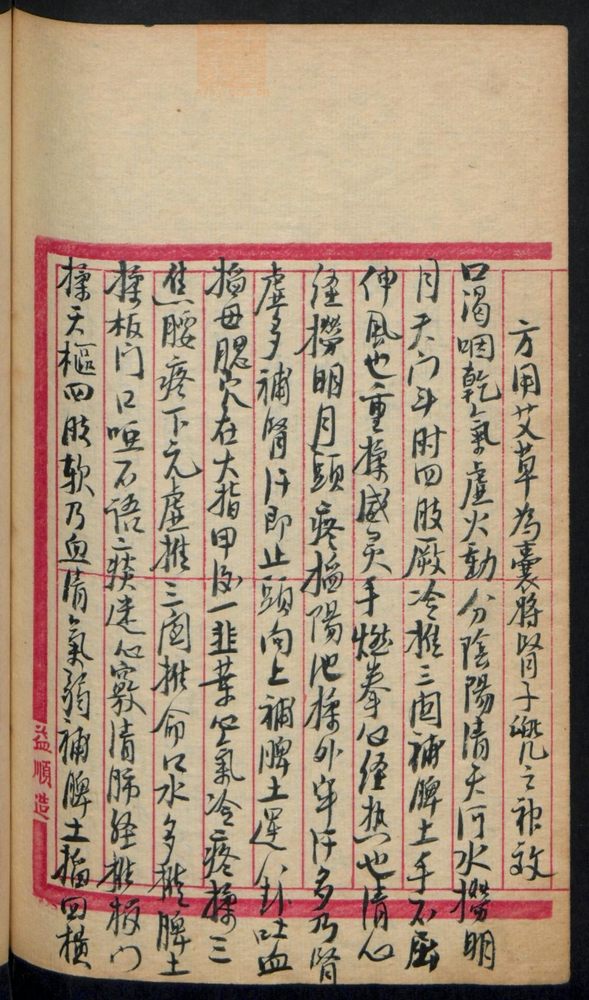 方用艾草為囊將腎子兜之神效
口渴咽乾氣虛火動分陰陽清天河水撈明
月天门斗肘四肢厥冷推三関補脾土手不屈
伸風也重揉威灵手燃拳心経熱也清心
経撈明月頭疼掐陽池揉外牢汗多乃腎
虛多補腎汗即止頭向上補脾土運八卦吐血
掐母腮穴在大指甲後一韭葉心氣冷疼揉三
焦腰疼下元虛推三関推命口水多推脾土
揉板门口哑不語痰迷心竅清肺経推板门
揉天樞四肢軟乃血清氣弱補脾土掐四橫
益順造